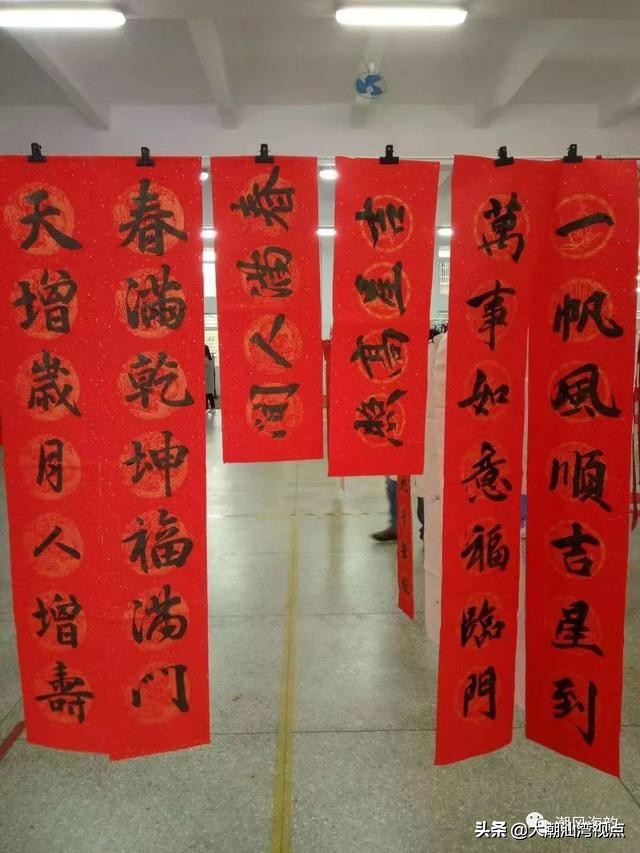 一帆風順吉星到
萬事如意福臨門
吉星高照
春满人间
春滿乾坤福满门
天增歲月人增壽
潮风海韵
头条 @大潮汕湾视点